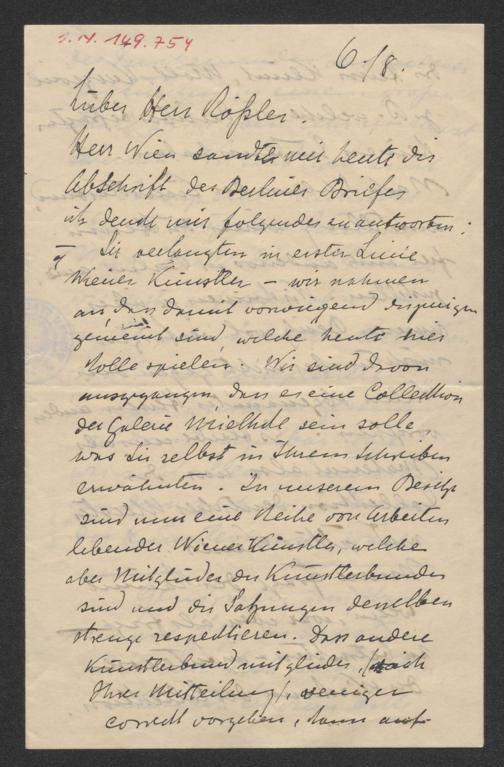 I.N. 149.754
6/8.
Lieber Herr Rößler.
Herr Wien sandte mir heute die
Abschrift des Berliner Briefes
ich denke mir folgendes zu antworten:
Sie verlangten in erster Linie
Wiener Künstler – wir nahmen
an dass damit vorwiegend diejenigen
gemeint sind welche heute hier
Rolle spielen. Wir sind davon
ausgegangen, dass es eine Collection
der Galerie Miethke sein solle,
was Sie selbst in Ihrem Schreiben
erwähnten. In unserem Besitze
sind nun eine Reihe von Arbeiten
lebender Wiener Künstler, welche
aber Mitglieder des Künstlerbundes
sind und die Satzungen desselben
strenge respectieren. Dass andere
Künstlerbundmitglieder, (nach
Ihrer Mitteilung), weniger
correct vorgehen, kann auf